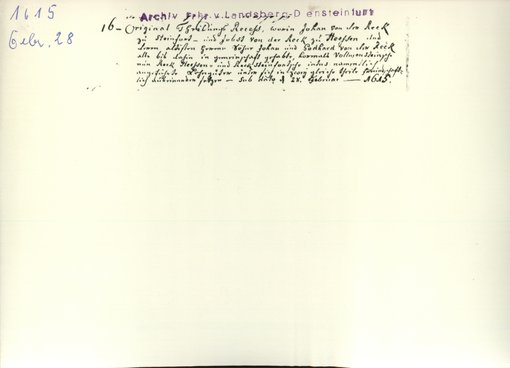 1615
Febr. 28
Archiv Frhr. v. Landsberg-Drensteinfurt
16 - Original Theilungs Receß, worin Johan von der Reck
zu Steinfurt - und Jobst von der Reck zu Heessen und
deren ältesten Herren Söhne Johan und Godhard von der Reck
alle bis dahin in gemeinschaft gehabte, vormals Volmersteinsche
nun Reck Heessen- und Reck Steinfurtsche
Lehngüter unter sich in zwey gleiche theile
setzen - sub dato d. 28. Februar - 1615